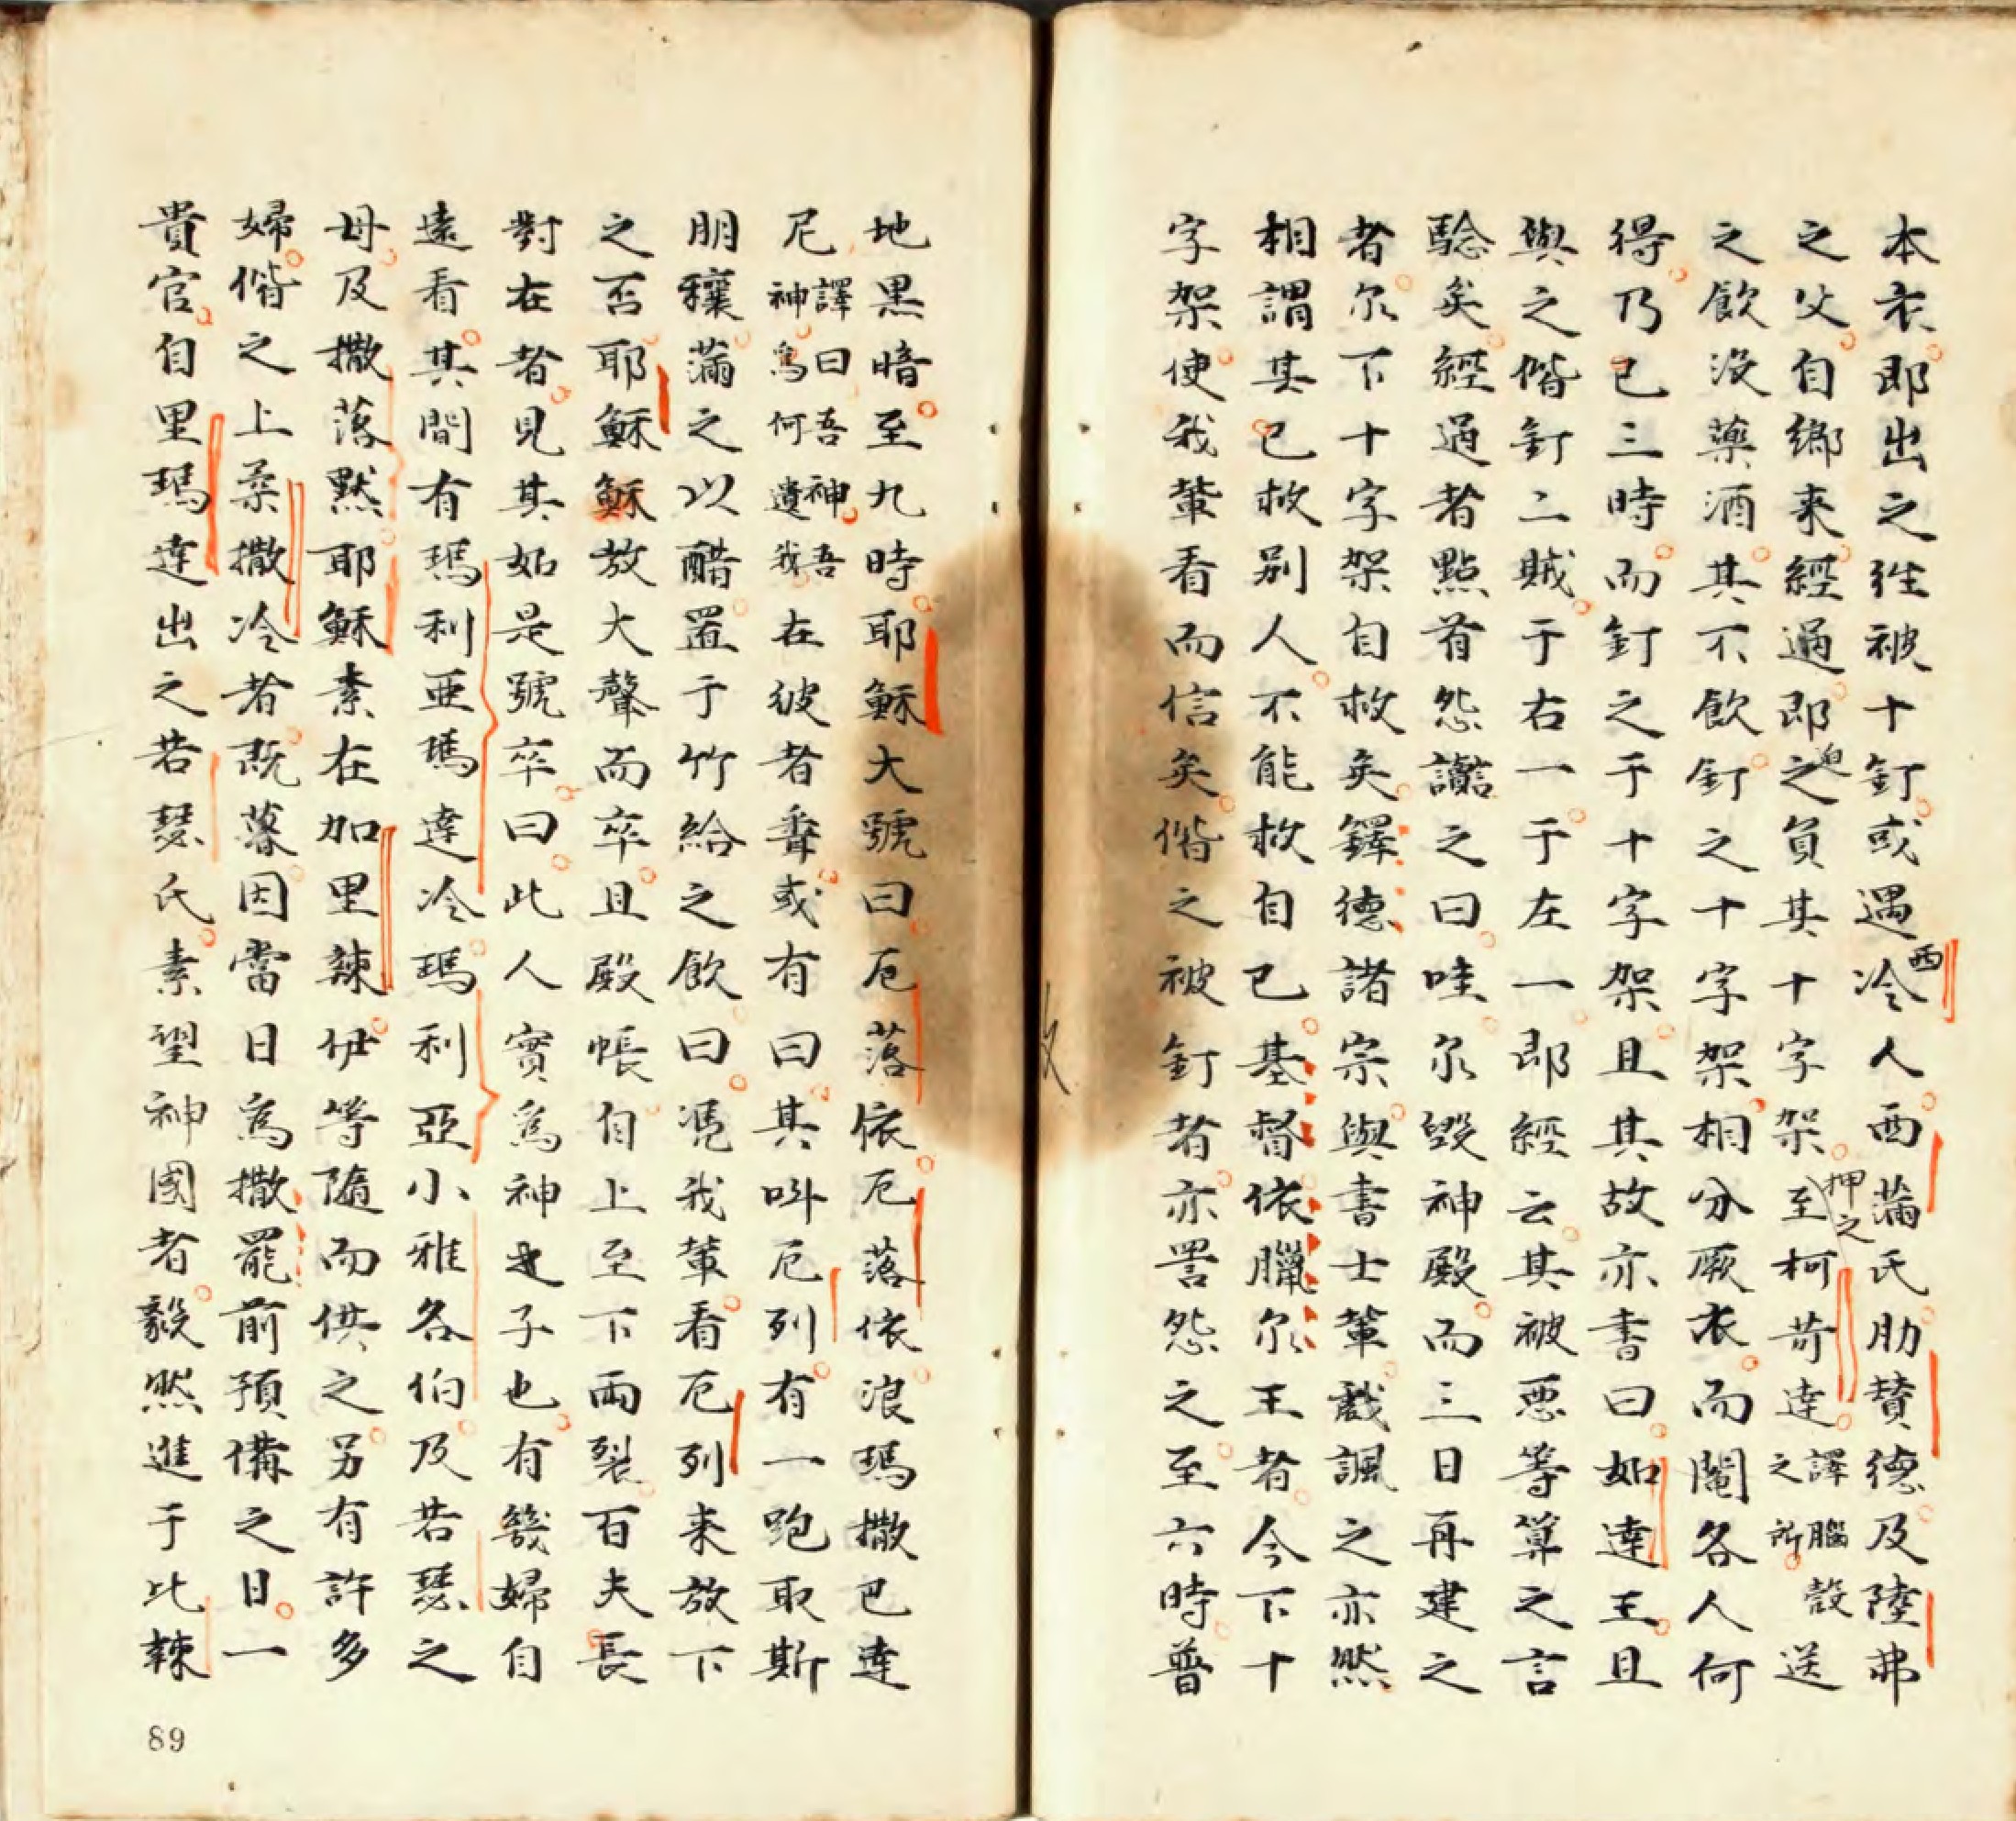 本衣即出之往被十釘或遇西冷人西蒲氏肋賛德及陸弗
之父自鄉來經過即迫之負其十字架押之至柯苛達譯腦殼之所送
之飲没藥酒其不飲釘之十字架相分厥衣而鬮各人何
得乃已三時而釘之于十字架且其故亦書曰如達王且
與之偕釘二賊于右一于左一即經云其被惡等算之言
騐矣經過者點首怨讟之曰哇尔毀神殿而三日再建之
者尔下十字架自救矣鐸德諸宗與書士輩戲諷之亦然
相謂其已救別人不能救自已基督依臘尔王者今下十
字架使我輩看而信矣偕之被釘者亦詈怨之至六時普
地黑暗至九時耶穌大號曰厄落依厄落依浪瑪撒巴達
尼譯曰吾神吾神爲何遺我在彼者聽或有曰其呌厄列有一跑取斯
朋穰滿之以醋置于竹給之飲曰凴我輩看厄列来放下
之否耶穌穌放大聲而卒且殿帳自上至下兩裂百夫長
對在者見其如是號卒曰此人實爲神之子也有幾婦自
遠看其間有瑪利亜瑪達冷瑪利亞小雅各伯及若瑟之
母及撒落默耶穌素在加里辣伊等隨而供之另有許多
婦偕之上柔撒冷者既暮因當日爲撒罷前預備之日一
貴官自里瑪達出之若瑟氏素望神國者毅然進于比辣
89